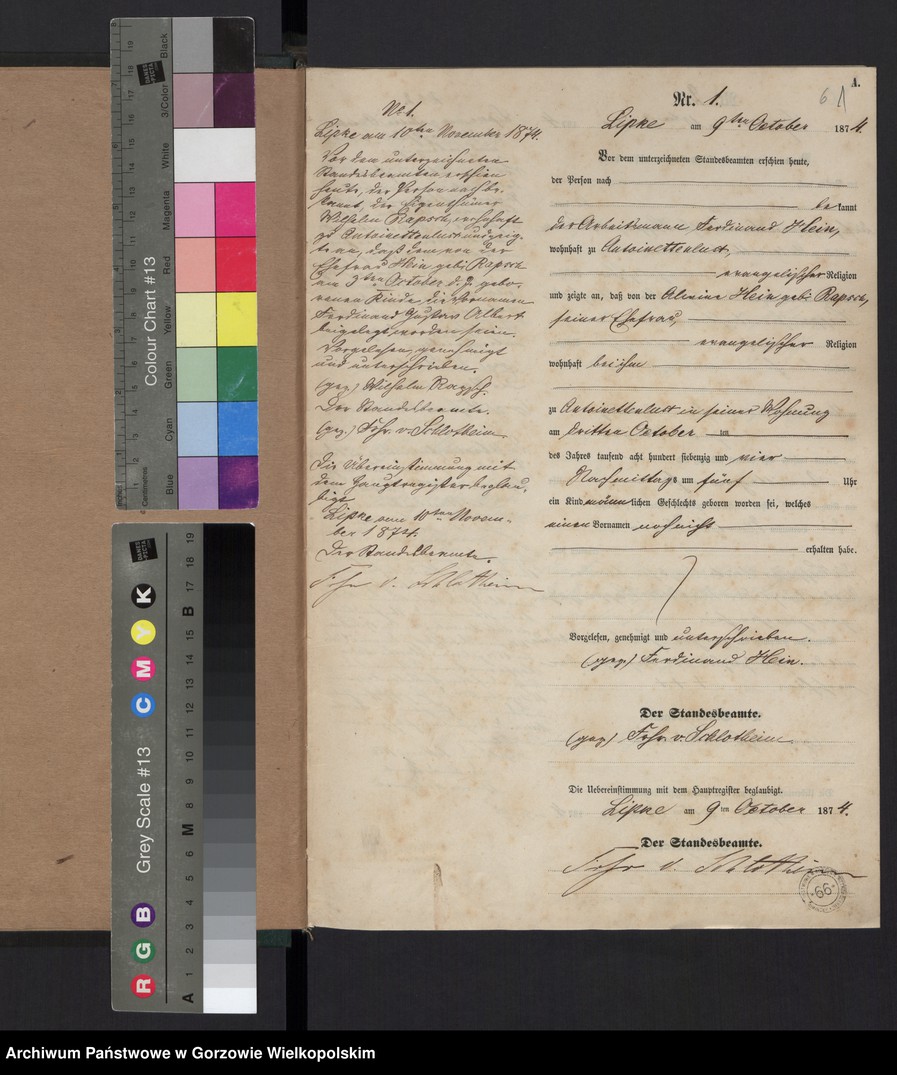 A.
61
Nr. 1.
Lipke am 9ten October 1874.
Vor dem unterzeichneten Standesbeamten erschien heute,
der Person nach
bekannt
der Arbeitsmann Ferdinand Hein,
wohnhaft zu Antoinettenlust,
evangelischer Religion
und zeigte an, daß von der Alwine Hein geb: Rapsch,
seiner Ehefrau,
evangelischer Religion
wohnhaft bei ihm
zu Antoinettenlust in seiner Wohnung
am dritten October ten
des Jahres tausend acht hundert siebenzig und vier
Nachmittags um fünf Uhr
ein Kind männlichen Geschlechts geboren worden sei, welches
einen Vornamen noch nicht
erhalten habe.
Vorgelesen, genehmigt und unterschrieben.
(gez) Ferdinand Hein.
Der Standesbeamte.
(gez) Frhr. v. Schlotheim
Die Uebereinstimmung mit dem Hauptregister beglaubigt.
Lipke am 9ten October 1874.
Der Standesbeamte.
Frhr v. Schlotheim
66
No 1.
Lipke am 10ten November 1874.
Vor dem unterzeichneten
Standesbeamten erschien
heute, der Person nach be-
kannt, der Eigenthümer
Wilhelm Rapsch, wohnhaft
zu Antoinettenlust und zeig-
te an, daß dem von der
Ehefrau Hein geb: Rapsch
am 3ten October d. J. gebo-
renen Kinde die Vornamen
Ferdinand Gustav Albert
beigelegt worden seien.
Vorgelesen, genehmigt
und unterschrieben.
(gez) Wilhelm Rapsch.
Der Standesbeamte.
(gez.) Frhr. v. Schlotheim
Die Übereinstimmung mit
dem Hauptregister beglau-
bigt
Lipke am 10ten Novem-
ber 1874.
Der Standesbeamte
Frhr v. Schlotheim
Colour Chart #13
Blue Cyan Green Yellow Red Magenta White 3/Color Black
Centimetres
DANES PICTA
Grey Scale #13
R G B C M Y K
A 1 2 3 4 5 6 M 8 9 10 11 12 13 14 15 B 17 18 19
Archiwum Państwowe w Gorzowie Wielkopolskim